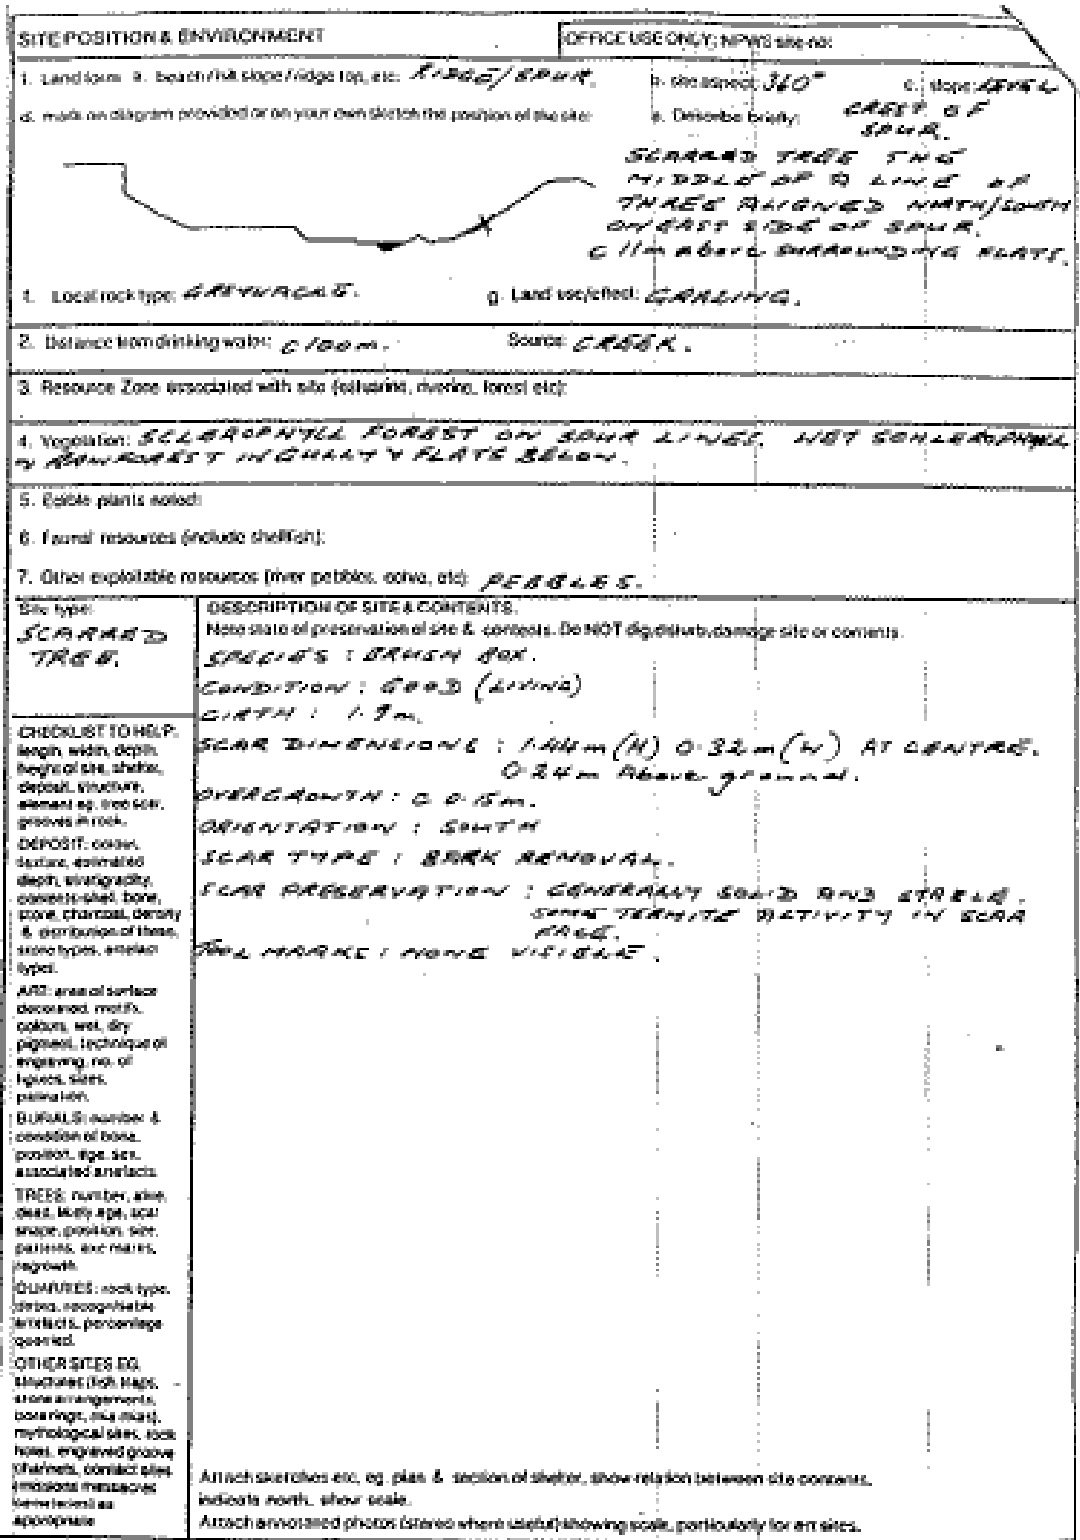 SITE POSITION & ENVIRONMENT
OFFICE USE ONLY: NPWS site no:
1. Land form a. beach/hill slope/ridge top, etc: RIDGE/SPUR.
b. site aspect: 360°
c. slope: LEVEL
d. mark on diagram provided or on your own sketch the position of the site:
e. Describe briefly: CREST OF
SPUR.
SCARRED TREE THE
MIDDLE OF A LINE OF
THREE ALIGNED NORTH/SOUTH
ON EAST SIDE OF SPUR.
C 11m above SURROUNDING FLATS.
f. Local rock type: GREYWACKE.
g. Land use/effect: GRAZING.
2. Distance from drinking water: C 100m.
Source: CREEK.
3. Resource Zone associated with site (estuarine, riverine, forest etc):
4. Vegetation: SCLEROPHYLL FOREST ON SPUR LINES. WET SCHLEROPHYLL
RAINFOREST IN GULLY & FLATS BELOW.
5. Edible plants noted:
6. Faunal resources (include shellfish):
7. Other exploitable resources (river pebbles, ochre, etc): PEBBLES.
Site type:
SCARRED
TREE.
DESCRIPTION OF SITE & CONTENTS.
Note state of preservation of site & contents. Do NOT dig, disturb, damage site or contents.
SPECIES : BRUSH BOX.
CONDITION : GOOD (LIVING)
GIRTH : 1.9m.
SCAR DIMENSIONS : 1.44m (H) 0.32m (W) AT CENTRE.
0.24m Above ground.
OVERGROWTH : C 0.15m.
ORIENTATION : SOUTH
SCAR TYPE : BARK REMOVAL.
SCAR PRESERVATION : GENERALLY SOLID AND STABLE.
SOME TERMITE ACTIVITY IN SCAR
FACE.
TOOL MARKS : NONE VISIBLE.
CHECKLIST TO HELP:
length, width, depth,
height of site, shelter,
deposit, structure,
element eg. tree scar,
grooves in rock.
DEPOSIT: colour,
texture, estimated
depth, stratigraphy,
contents-shell, bone,
stone, charcoal, density
& distribution of these,
stone types, artefact
types.
ART: area of surface
decorated, motifs,
colours, wet, dry
pigment, technique of
engraving, no. of
figures, sizes,
patination.
BURIALS: number &
condition of bone,
position, age, sex,
associated artefacts.
TREES: number, alive,
dead, likely age, scar
shape, position, size,
patterns, axe marks,
regrowth.
QUARRIES: rock type,
debris, recognisable
artefacts, percentage
quarried.
OTHER SITES EG.
structures (fish traps,
stone arrangements,
bora rings, mia mias),
mythological sites, rock
holes, engraved groove
channels, contact sites
(missions massacres
cemeteries) as
appropriate
Attach sketches etc, eg. plan & section of shelter, show relation between site contents,
indicate north, show scale.
Attach annotated photos (stereo where useful) showing scale, particularly for art sites.